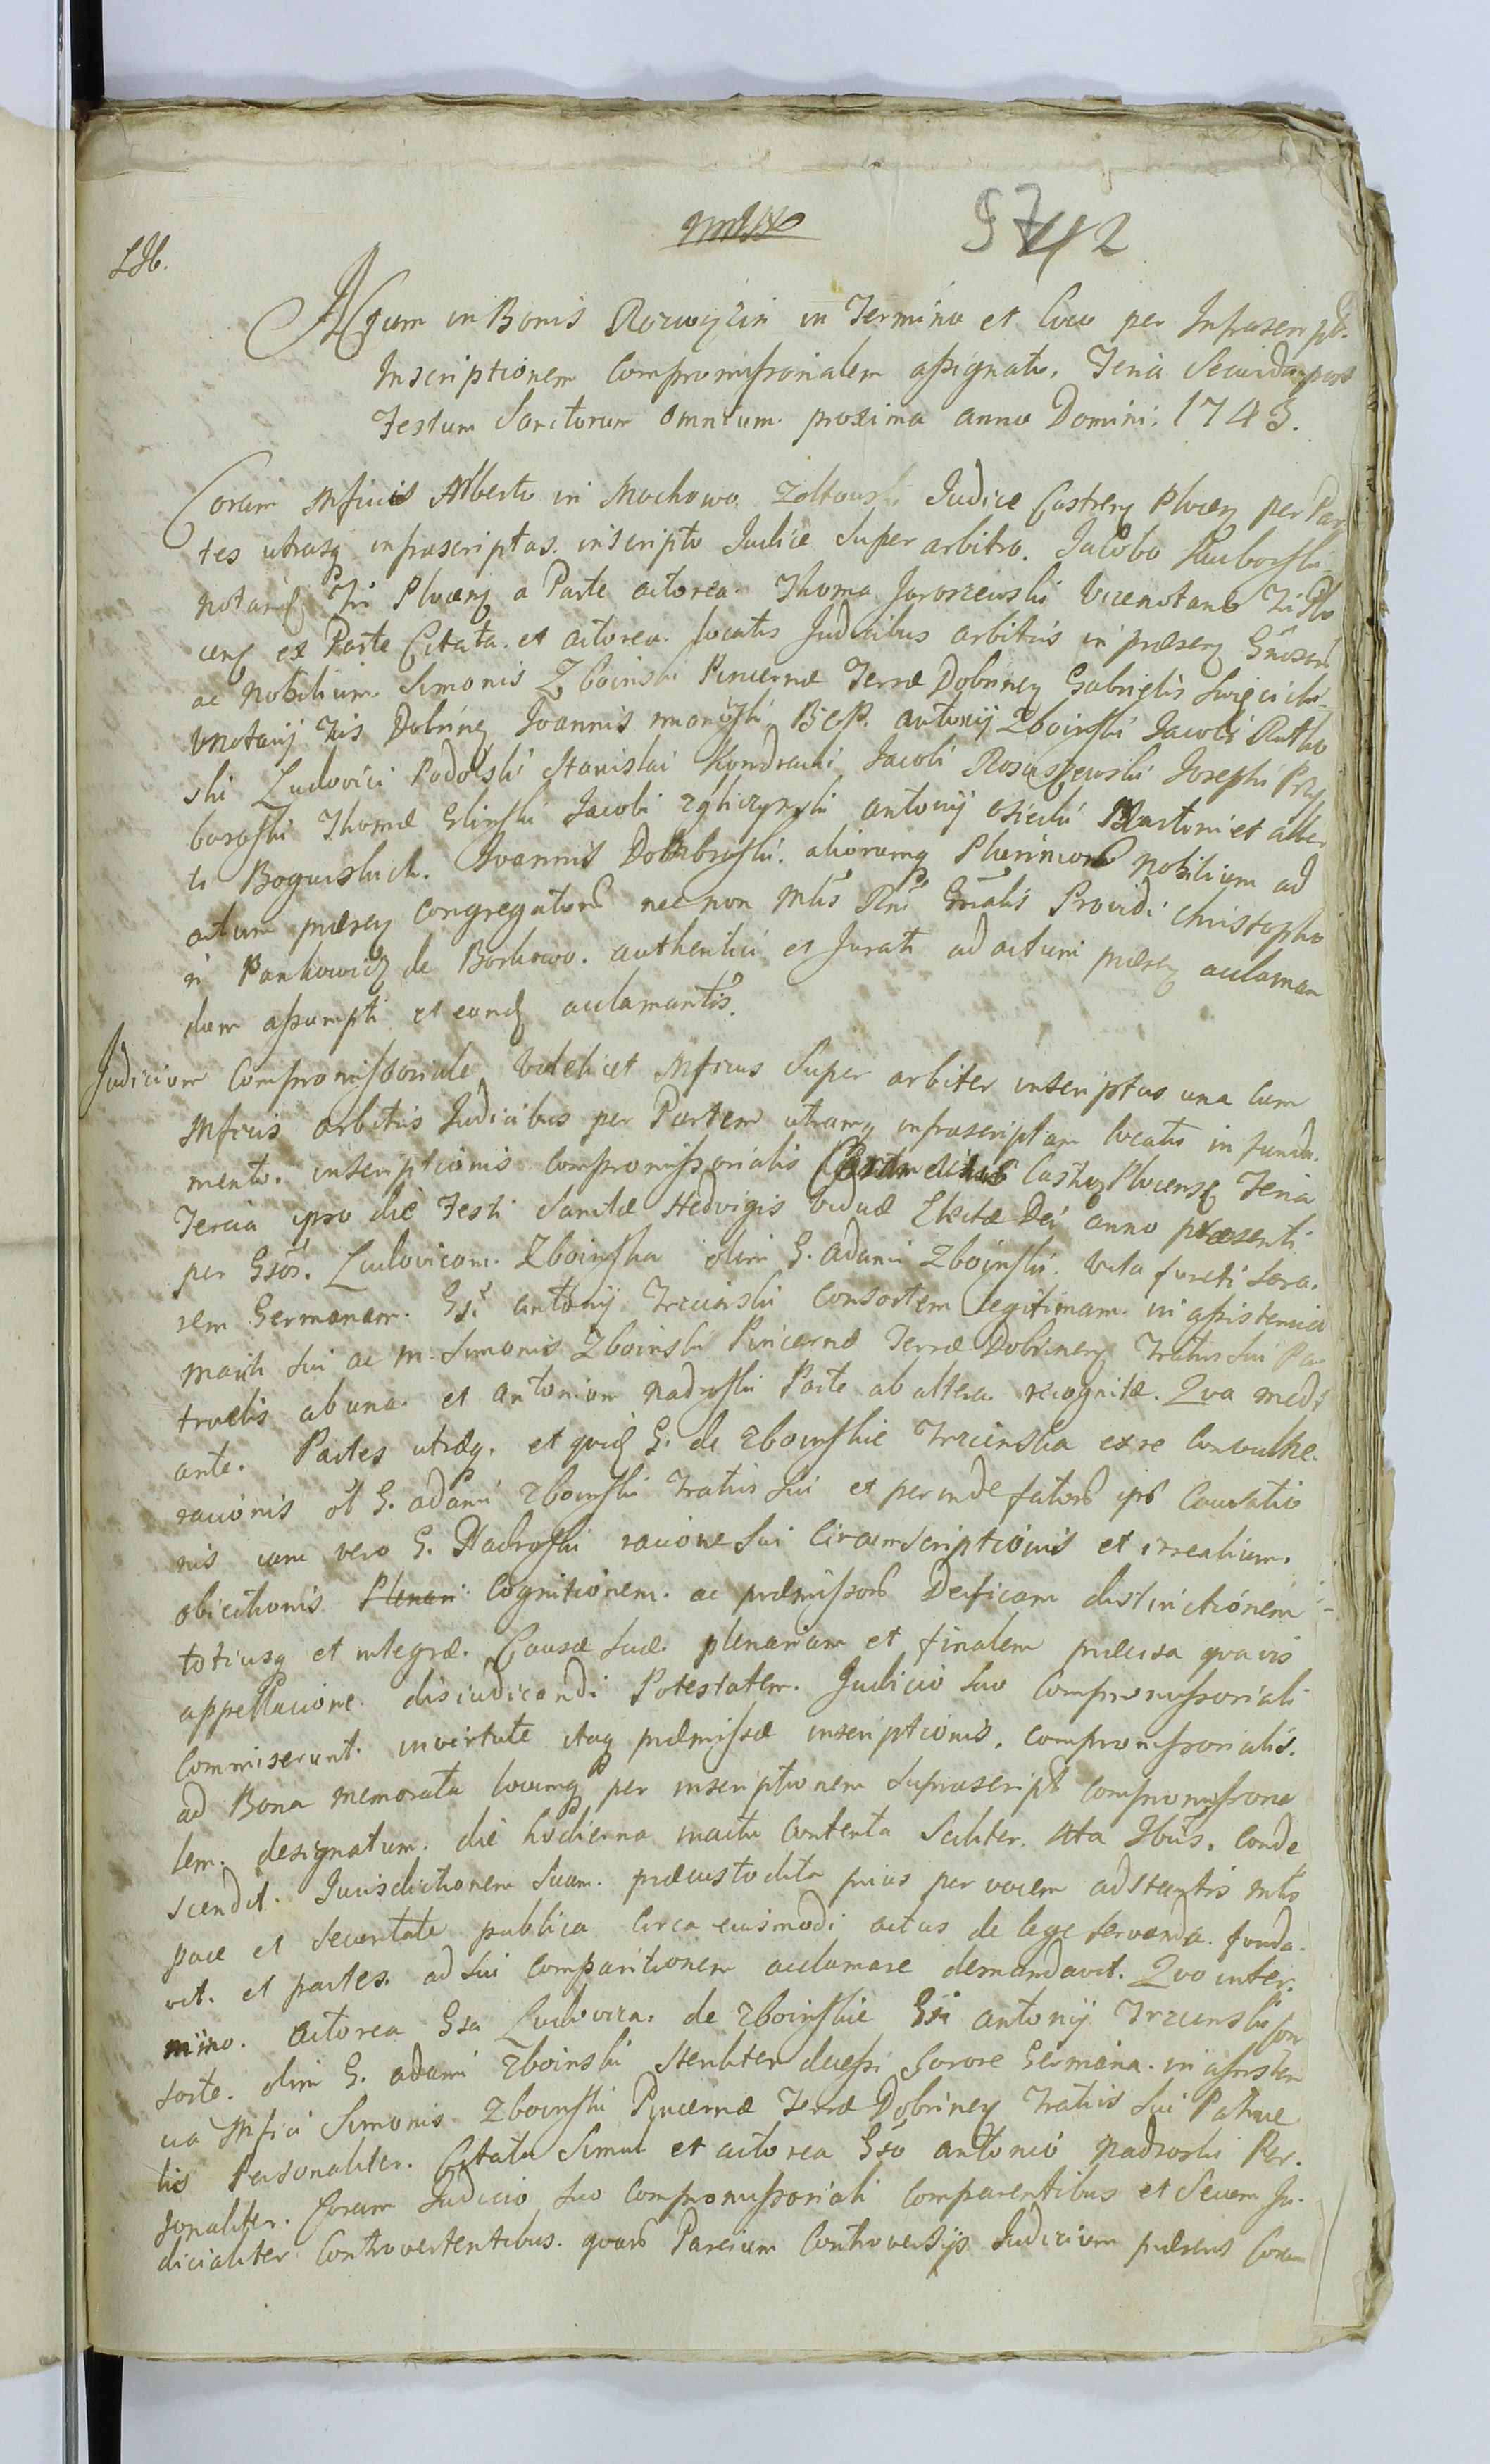 5742
Actum in Bonis Rozwozin in Termino et loco per Infrascript.
Inscriptionem Compromissorialem assignato. Feria Secunda post
Festum Sanctorum Omnium proxima anno Domini. 1745.
Coram Mficis Alberto in Mochowo Zoltowski Judice Castren Plocen per Par
tes utrasq infrascriptas. inscripto Judice Super arbitro. Jacobo
notario Plocen a Parte actorea. Thoma Jaroszewski Vicenotario Plo
cen ex Parte Citata. et actorea. locatis Judicibus arbitris in præsen
ac Nobilium. Simonis Zboinski Pincernæ Terræ Dobrinen Gabrielis Swięcicki
Vnotarij Dobrinen Joannis Antonij Zboinski Jacobi Rutko
ski Ludovici Podolski Stanislai Kondracki Jacobi Rosciszewski Josephi Przy
boroski Thomæ Glinski Jacobi Zgliczynski antonij Osiecki Martini et alber
ti Boguckich. Joannis Dombroski. aliorumq Plurimorum Nobilium ad
actum præsen congregatorum nec non Mlis Rni Gnalis Providi Christopho
ri Pankowicz de Borkowo. authentici et Jurati ad actum præsen acclaman
dum assumpti et eund acclamantis.
Judicium Compromissoriale videlicet Mficus Super arbiter inscriptus una Cum
Mficis arbitris Judicibus per Partem utramq infrascriptam locatis in funda.
mento. inscriptionis compromissorialis Castren Plocens Feria
Tercia ipso die Festi Sanctæ Hedvigis viduæ Electæ Dei anno præsenti
per Gsos. Ludovicam. Zboinska olim G. adami Zboinski. vita functi Soro.
rem Germanam. Gsi antonij Trzcinski Consortem legitimam in assistencia
mariti sui ac M. Simonis Zboinski Pincernæ Terræ Dobrinen Fratris sui Pa
truelis ab una. et antonium Nadroski Parte ab altera recognitæ. Qva medi
ante. Partes utræq. et qvid G. de Zboinskie Trzcinska ex re
racionis ol G. adami Zboinski Fratris sui et perinde
nis iam vero G. Nadroski racione sui Circumscriptionis et irrealium.
obiectionis Plenari Cognitionem. ac præmissorum Deificam distinctionem
totiusq et integræ. Causæ suæ. plenariam et finalem præcisa qvavis
appellacione. disiudicandi Potestatem. Judicio suo Compromissoriali
Commiserunt. in virtute itaq præmissæ inscriptionis. compromissorialis.
ad Bona memorata locumq per inscriptionem suprascript compromissoria
lem. designatum. die hodierna in actu Contenta Saliter. Conde
scendit. Jurisdictionem Suam. præcustodita prius per vocem adstantis Mlis
pace et Securitate publica Circa eiusmodi actus de lege servanda. funda.
vit. et partes. ad sui Comparitionem acclamare demandavit. Qvo in ter.
mino. actorea Gsa Ludovica. de Zboinskie Gsi antonij Trzcinski Con
sorte. olim G. adami Zboinski Steriliter decessi Sorore Germana. in assisten
cia Mfici Simonis Zboinski Pincernæ Terræ Dobrinen Fratris sui Patrue
lis Personaliter. Citato Simul et actorea Gso antonio Nadroski Per.
sonaliter. Coram Judicio suo Compromissoriali Comparentibus et Secum Ju.
dicialiter Controvertentibus. qvarum Parcium Controversijs Judicium præsens Coram